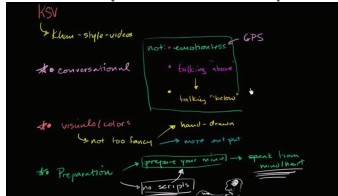 KSV
Khan-style-videos
not: emotionless GPS
conversational
talking "above"
talking "below"
visuals/colors
not too fancy
hand-drawn
more output
Preparation
prepare your mind
speak from
mind/heart
no scripts